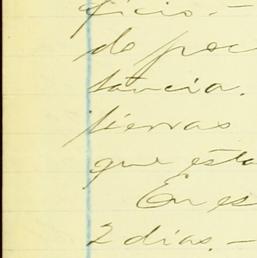 ficio.-
de poc
tancia.
tierras
que esta
En es
2 dias.-